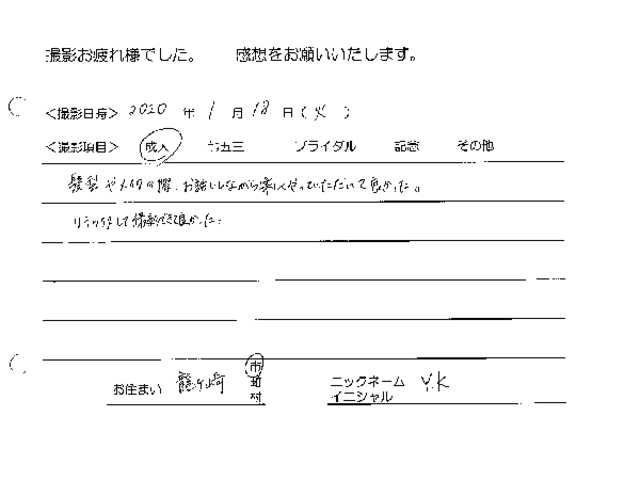 撮影お疲れ様でした。 感想をお願いいたします。
＜撮影日時＞ 2020 年 1 月 18 日（火）
＜撮影項目＞ 成人 七五三 ブライダル 記念 その他
髪型やメイクの際、お話ししながら楽しくやっていただいて良かった。
リラックスして撮影できて良かった。
お住まい 龍ヶ崎 市 町 村 ニックネーム イニシャル Y.K